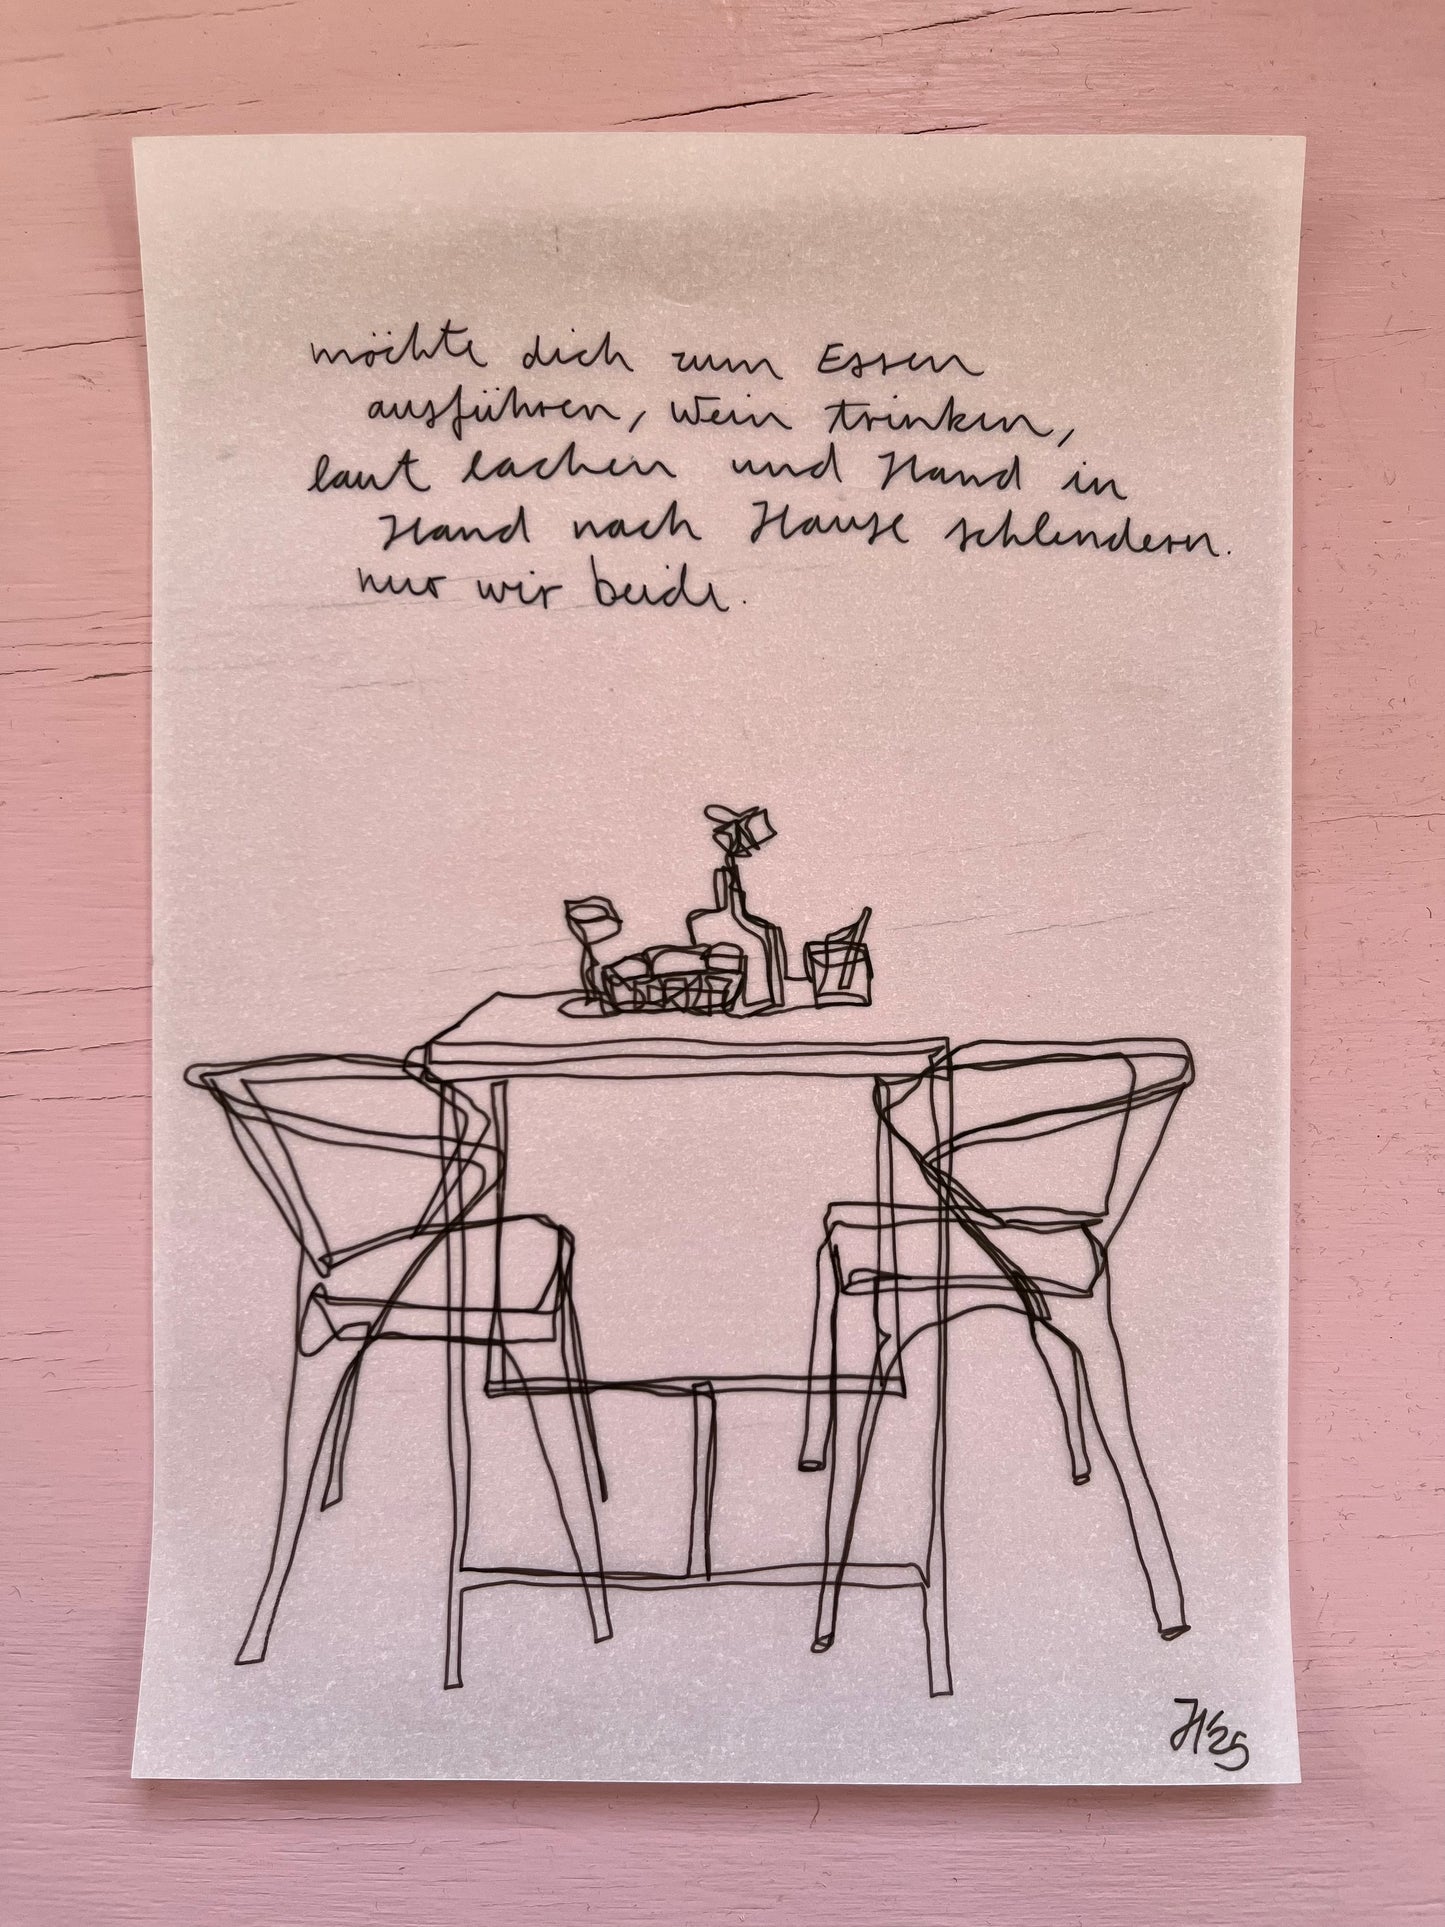 möchte dich zum Essen
ausführen, Wein trinken,
laut lachen und Hand in
Hand nach Hause schlendern.
nur wir beide.
H'25